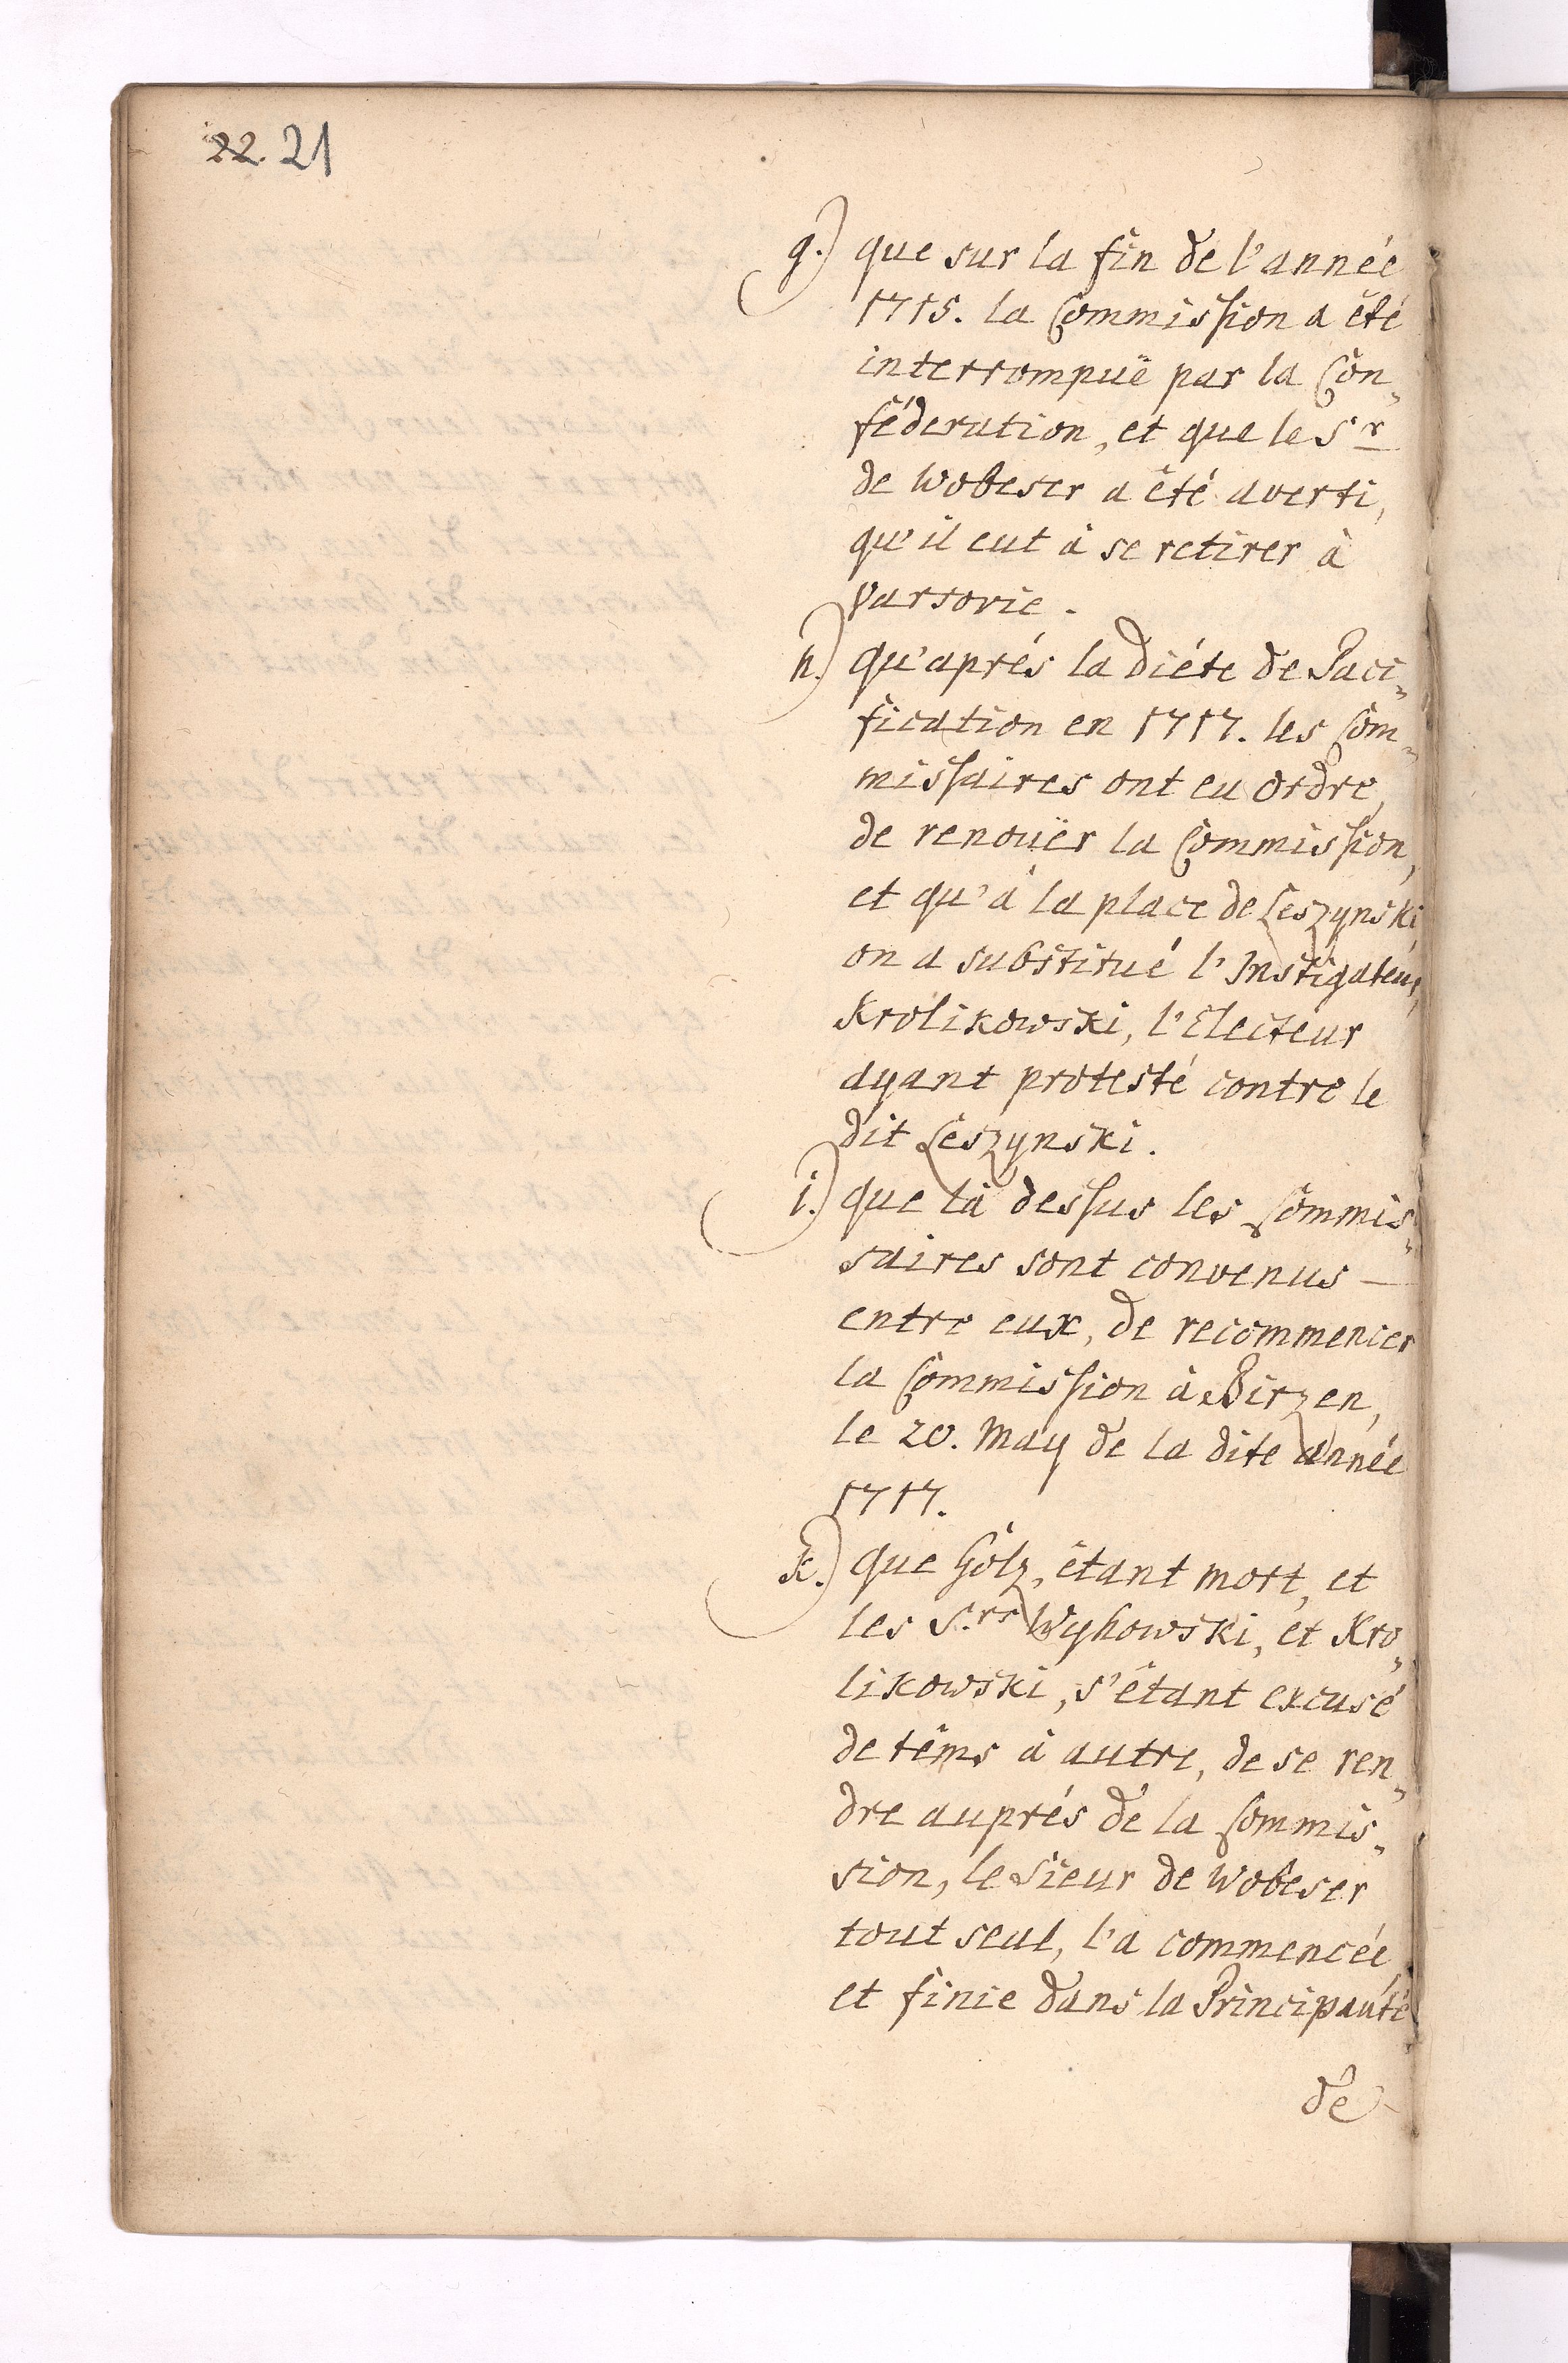 22. 21
g.) que sur la fin de l'année
1715. la Commission a êté
interrompuë par la Con„
féderation, et que le S.r
de Wobeser a êté averti,
qu'il eut à se retirer à
Varsovie.
h.) qu'aprés la Diéte de Paci„
fication en 1717. les Com„
missaires ont eu Ordre,
de renouër la Commission,
et qu'à la place de Leszynski,
on a substitué l'Instigateur,
Krolikowski, l'Electeur
ayant protesté contre le
dit Leszynski.
i.) que là dessus les Commis„
saires sont convenus —
entre eux, de recommencer
la Commission à Birzen,
le 20. May de la dite année
1717.
k.) que Gölz, êtant mort, et
les S.rs Wyhowski, et Kro„
likowski, s'êtant excusé
de têms à autre, de se ren„
dre auprés de la Commis„
sion, le Sieur de Wobeser
tout seul, l'a commencée
et finie dans la Principauté
de